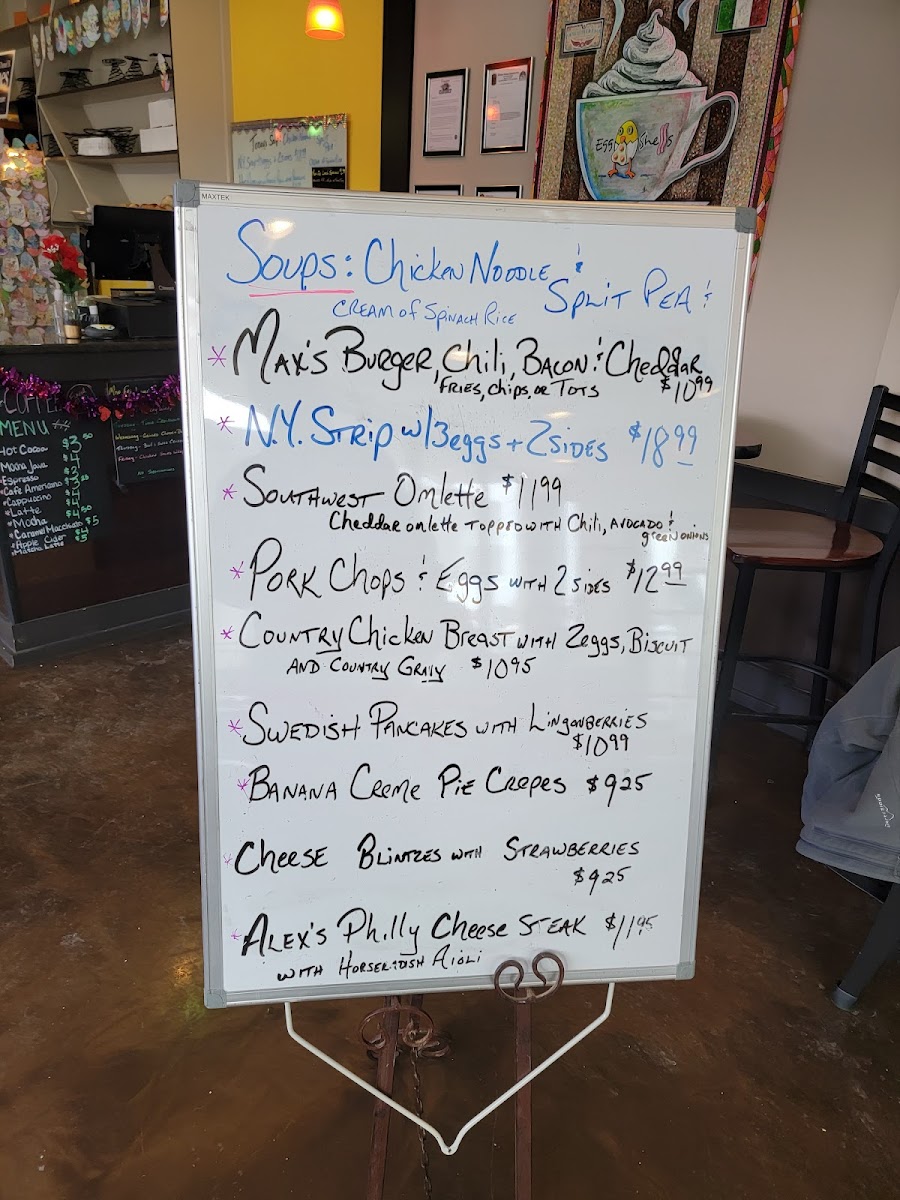 MAXTEK
Soups: Chicken Noodle &
Split Pea &
Cream of Spinach Rice
* Max's Burger, Chili, Bacon & Cheddar
Fries, Chips, or Tots $10.99
* N.Y. Strip w/3 eggs + 2 sides $18.99
* Southwest Omlette $11.99
Cheddar omlette topped with Chili, Avocado &
green onions
* Pork Chops & Eggs with 2 sides $12.99
* Country Chicken Breast with 2 eggs, Biscuit
and Country Gravy $10.95
* Swedish Pancakes with Lingonberries
$10.99
* Banana Creme Pie Crepes $9.25
* Cheese Blintzes with Strawberries
$9.25
* Alex's Philly Cheese Steak $11.95
with Horseradish Aioli
Egg Shells
COFFEE
MENU
Hot Cocoa $3.50
Mocha Java
Espresso
Cafe Americano
Cappuccino
Latte
Mocha $4.50
Caramel Macchiato $5
Apple Cider
Matcha Latte